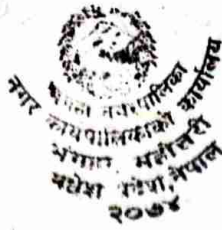 नगरपालिका
नगर कार्यपालिकाको कार्यालय
भंगाहा महोत्तरी
मधेश प्रदेश, नेपाल
२०७४